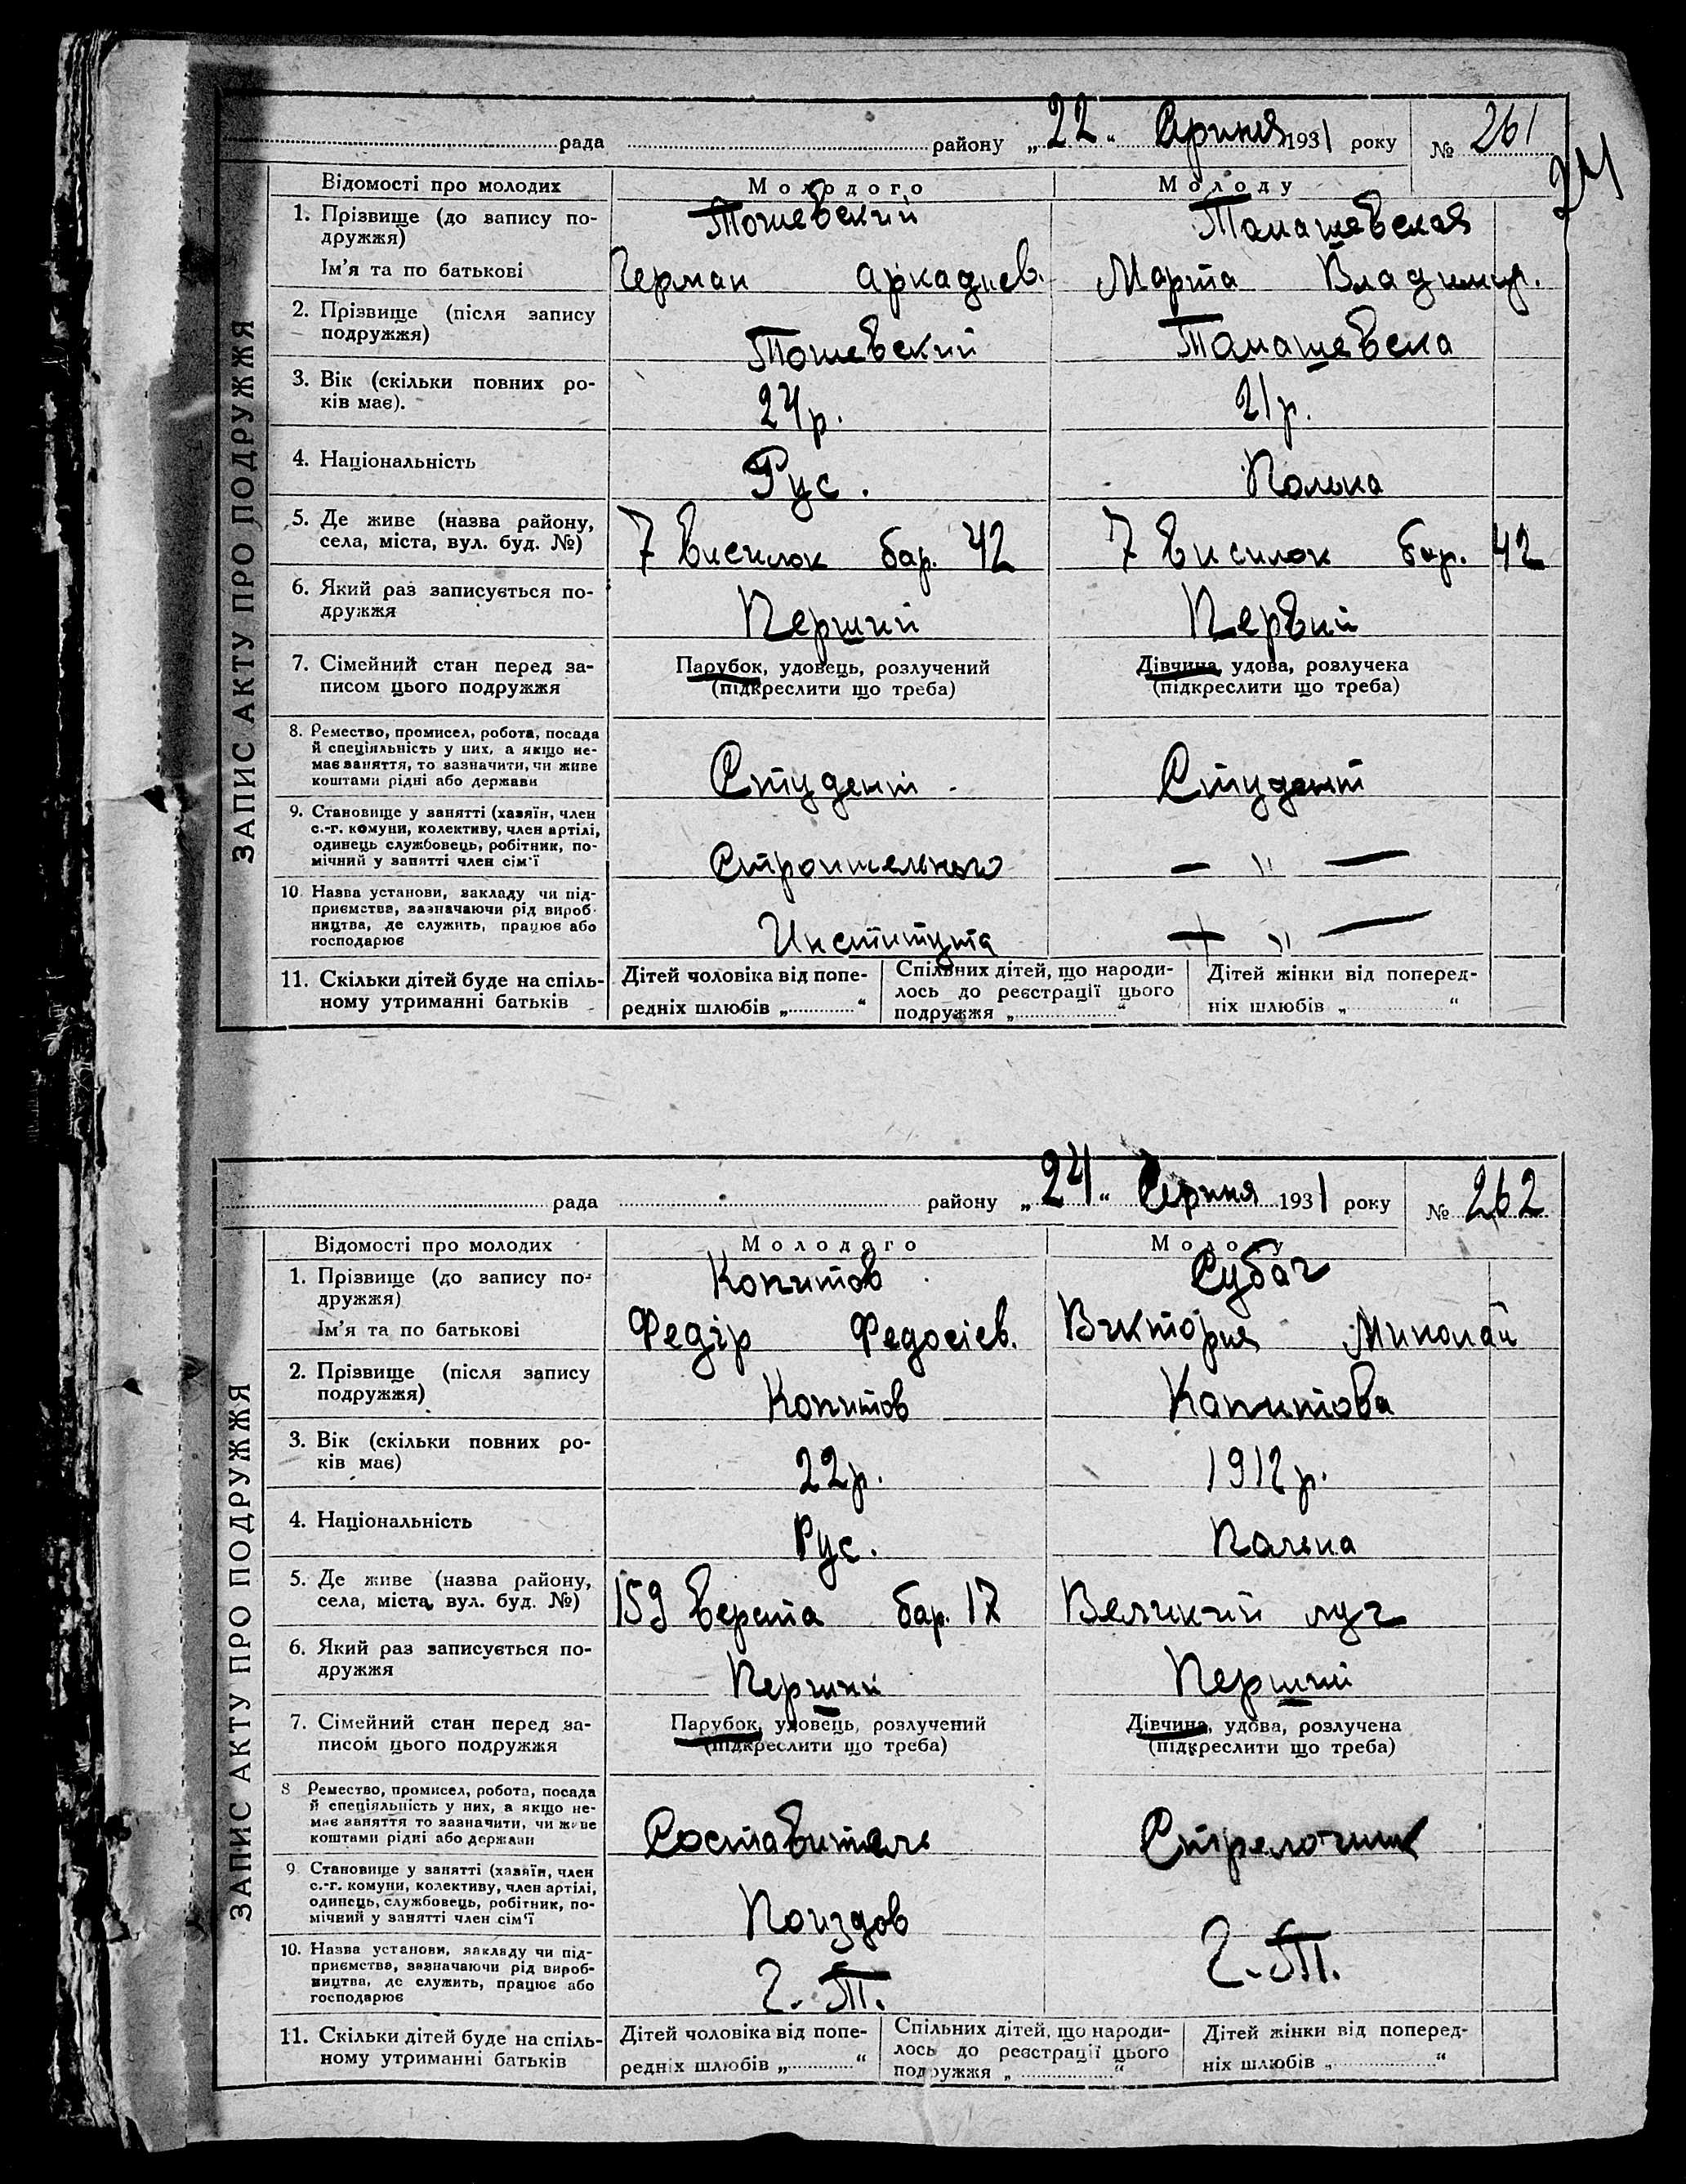 рада району „22“ Серпня 1931 року № 261
24
ЗАПИС АКТУ ПРО ПОДРУЖЖЯ
Відомості про молодих Молодого Молоду
1. Прізвище (до запису по-
дружжя) Тошевский Тамашевская
Ім'я та по батькові Герман Аркадиев. Марта Владимир.
2. Прізвище (після запису
подружжя) Тошевский Тамашевска
3. Вік (скільки повних ро-
ків має). 24 р. 21 р.
4. Національність Рус. Полька
5. Де живе (назва району,
села, міста, вул. буд. №) 7 висилок бар. 42 7 висилок бар. 42
6. Який раз записується по-
дружжя Перший Первий
7. Сімейний стан перед за- Парубок, удовець, розлучений Дівчина, удова, розлучена
писом цього подружжя (підкреслити що треба) (підкреслити що треба)
8. Ремество, промисел, робота, посада
й спеціяльність у них, а якщо не-
має заняття, то зазначити, чи живе
коштами рідні або держави Студент Студент
9. Становище у занятті (хазяїн, член
с.-г. комуни, колективу, член артілі,
одинець службовець, робітник, по-
мічний у занятті член сім'ї Строительного — " —
10 Назва установи, закладу чи під-
приємства, зазначаючи рід вироб-
ництва, де служить, працює або
господарює Института — " —
11. Скільки дітей буде на спіль- Дітей чоловіка від попе- Спільних дітей, що народи- Дітей жінки від поперед-
ному утриманні батьків редніх шлюбів „ “ лось до реєстрації цього ніх шлюбів „ “
подружжя „ “
рада району „24“ Серпня 1931 року № 262
ЗАПИС АКТУ ПРО ПОДРУЖЖЯ
Відомості про молодих Молодого Молоду
1. Прізвище (до запису по-
дружжя) Копитов Субач
Ім'я та по батькові Федір Федосіев. Виктория Миколай
2. Прізвище (після запису
подружжя) Копитов Капитова
3. Вік (скільки повних ро-
ків має) 22 р. 1912 р.
4. Національність Рус. Полька
5. Де живе (назва району,
села, міста, вул. буд. №) 159 верста бар. 17 Великий луг
6. Який раз записується по-
дружжя Перший Перший
7. Сімейний стан перед за- Парубок, удовець, розлучений Дівчина, удова, розлучена
писом цього подружжя (підкреслити що треба) (підкреслити що треба)
8 Ремество, промисел, робота, посада
й спеціяльність у них, а якщо не-
має заняття то зазначити, чи живе
коштами рідні або держави Составитель Стрелочник
9 Становище у занятті (хазяїн, член
с.-г. комуни, колективу, член артілі,
одинець, службовець, робітник, по-
мічний у занятті член сім'ї Поиздов
10. Назва установи, закладу чи під-
приємства, зазначаючи рід вироб-
ництва, де служить, працює або
господарює
11. Скільки дітей буде на спіль- Дітей чоловіка від попе- Спільних дітей, що народи- Дітей жінки від поперед-
ному утриманні батьків редніх шлюбів „ “ лось до реєстрації цього ніх шлюбів „ “
подружжя „ “